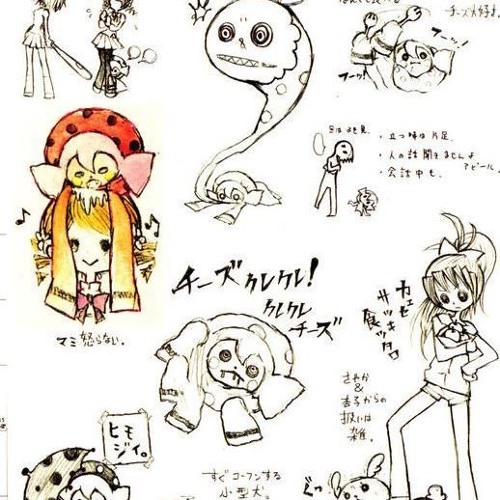 チーズ大好き。
フーッ!
フーッ!
・立つ時は片足。
・人の話聞きませんよ
アピール。
・会話中も、
チーズクレクレ!
クレクレ
チーズ
マミ怒らない。
カエセ
サッキ
食ッタ
さやか
&
杏子からの
扱いは
雑。
ヒモ
ジイ。
すぐコーフンする
小型犬。
ぐっ